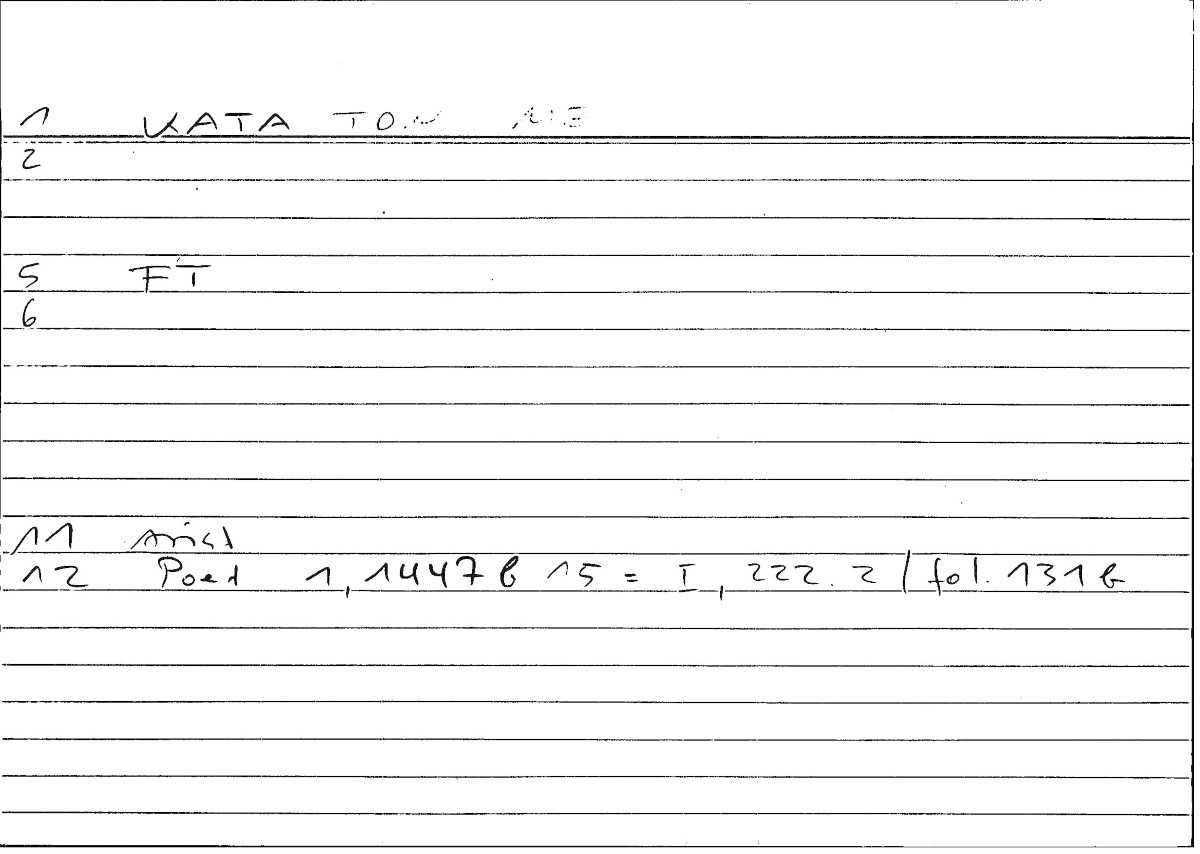 1 KATA TON
2
5 FT
6
11 Arist
12 Poet 1, 1447 b 15 = I, 222. 2 / fol. 131 b